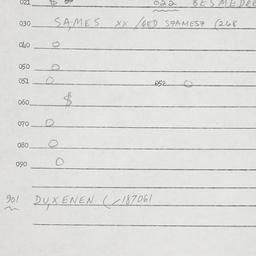 021 $ 022 BESMEDRE
030 SAMES XX /GED STAMEST (268
040 0
050 0
051 0 052 0
060 $
070 0
080 0
090 0
901 DUXENEN (/187061